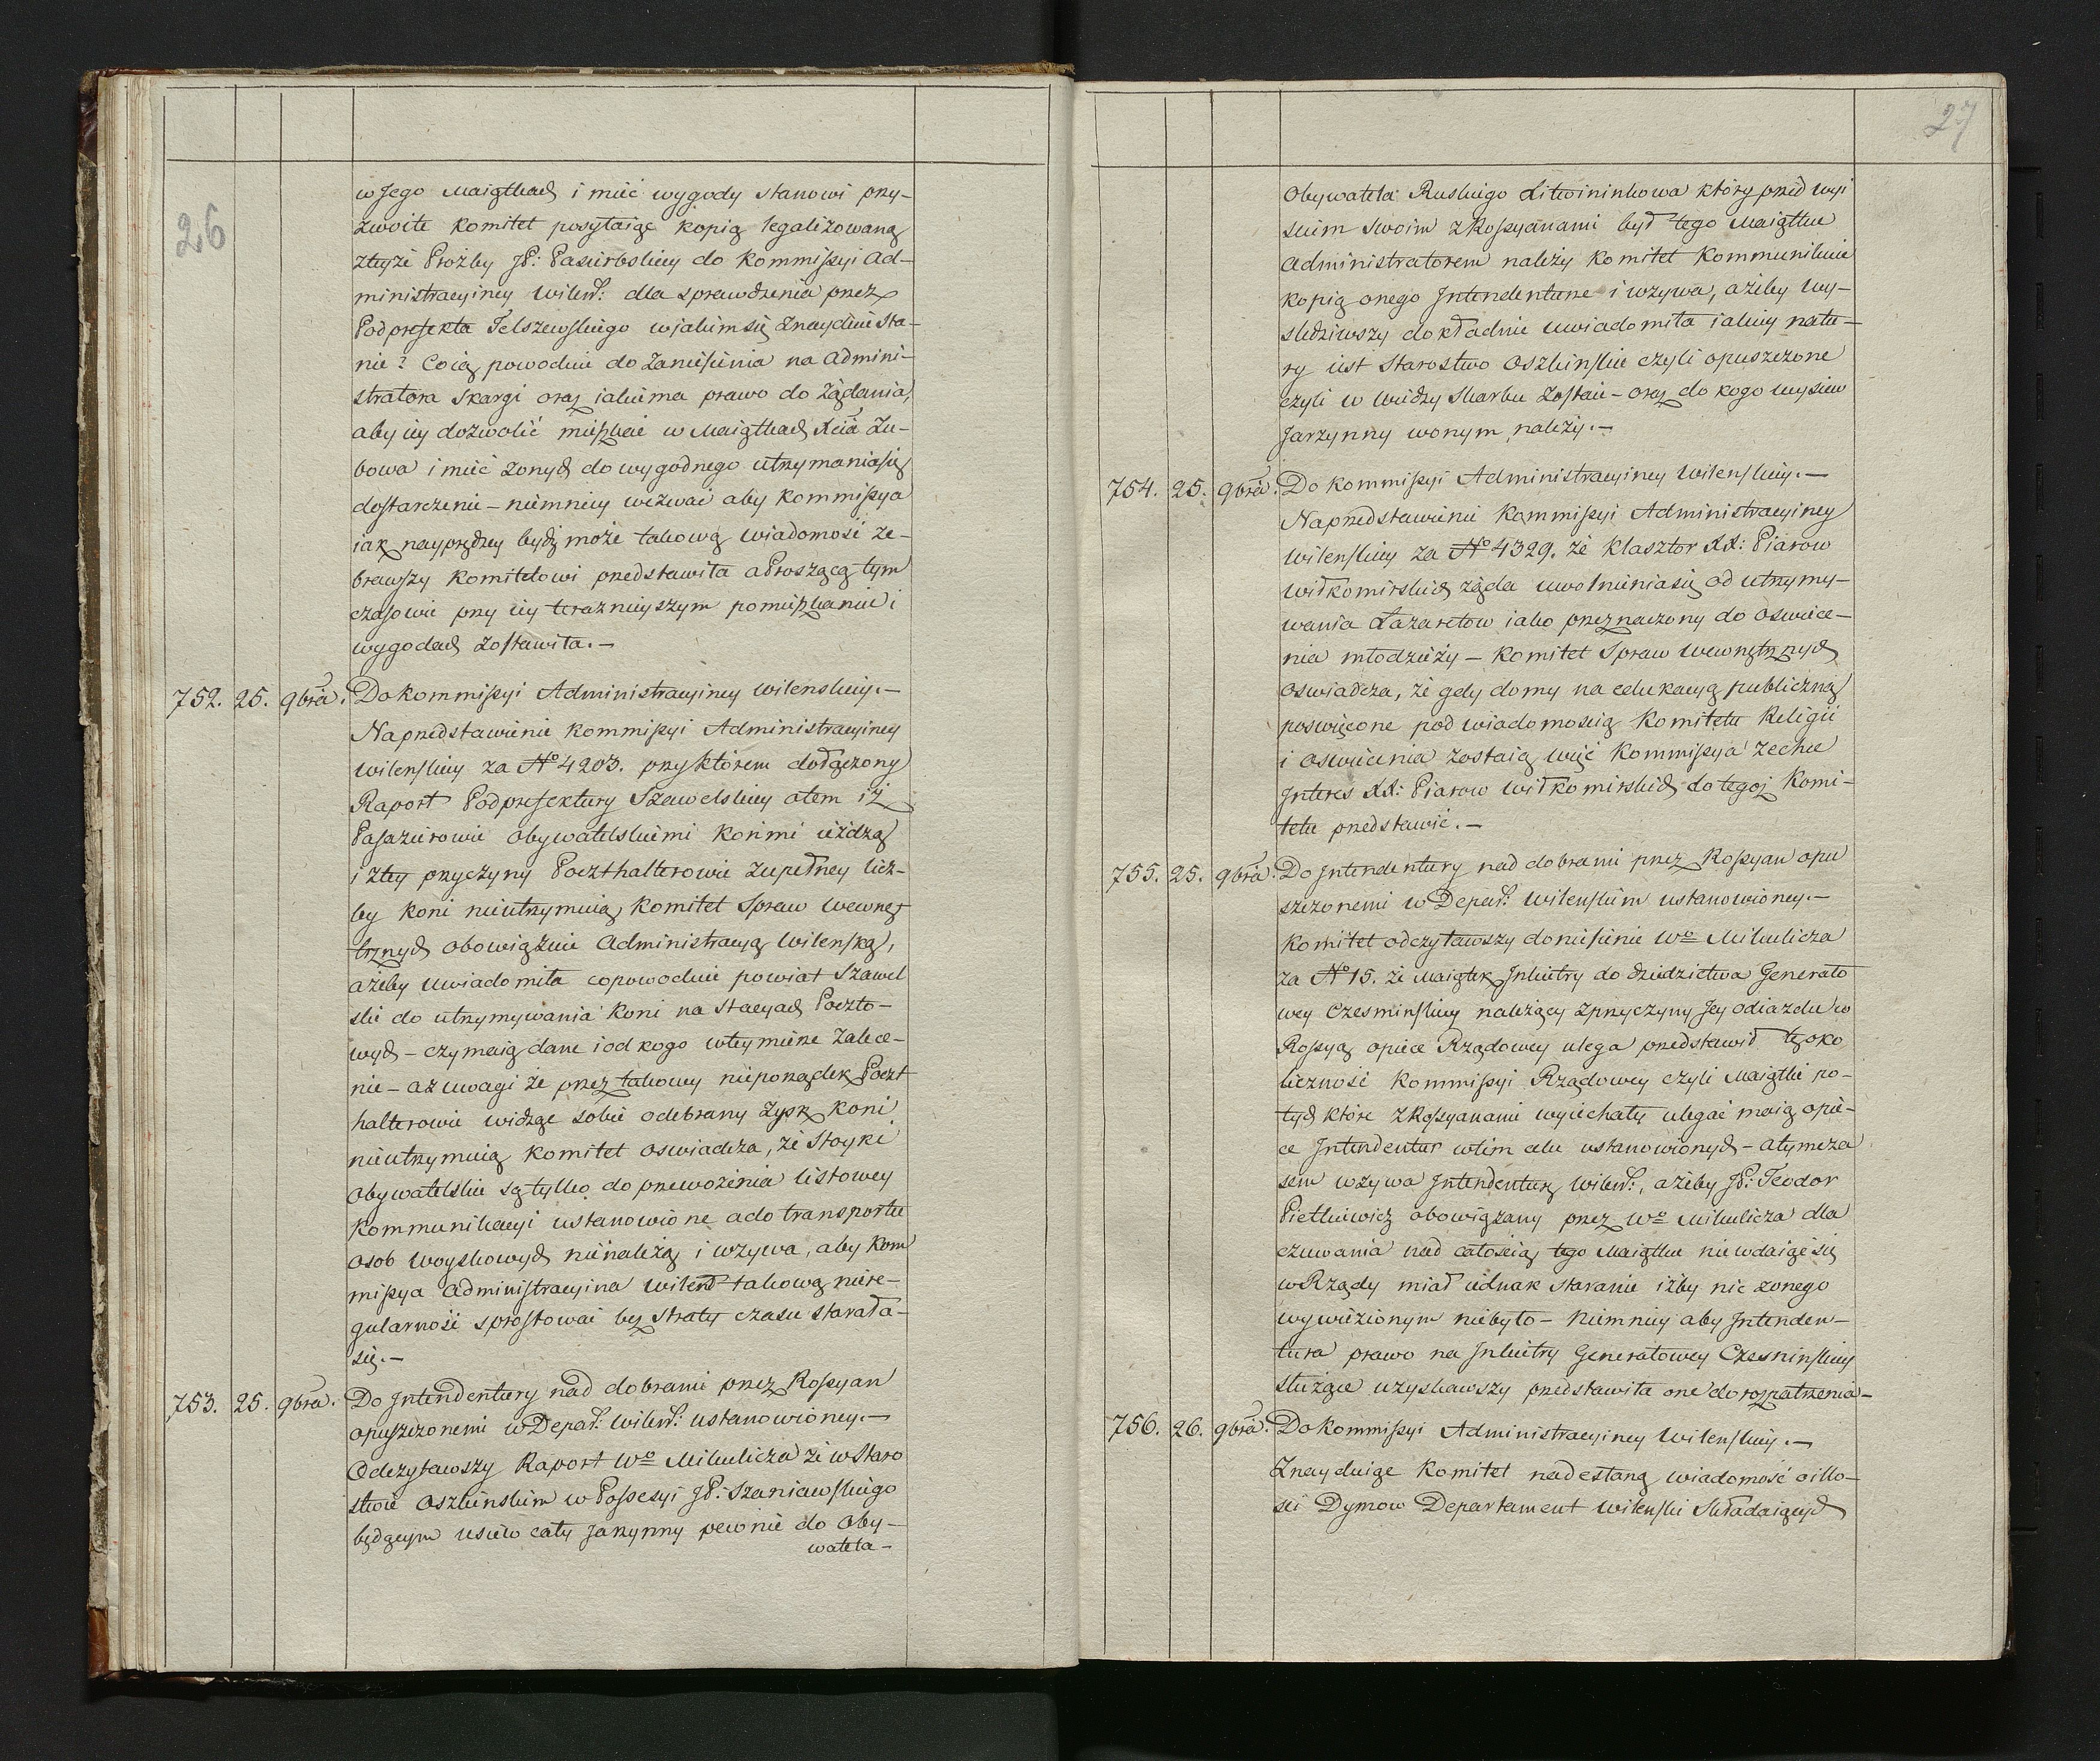 26
w Jego Maiątkach i mieć wygody stanowi przy-
zwoite Komitet posyłaiąc kopią legalizowaną
zteyże Prożby JP: Pasierbskiey do Kommissyi Ad-
ministracyiney Wileńs: dla sprawdzenia przez
Podprefekta Telszewskiego w jakim się znayduie sta-
nie? Co ią powoduie do zaniesienia na Admini-
stratora Skargi oraz iakie ma prawo do żądania,
aby iey dozwolić mieszkać w Maiątkach Xcia Zu-
bowa i mieć zonych do wygodnego utrzymania się
dostarczenie – niemniey wezwać aby Kommissya
iak nayprędzey bydź może takową wiadomość ze-
brawszy Komitetowi przedstawiła a Proszącą tym
czasowie przy iey teraznieyszym pomieszkaniu i
wygodach zostawiła. –
752. 25. 9bra. Do Kommissyi Administracyiney Wilenskiey. –
Na przedstawienie Kommissyi Administracyiney
Wilenskiey za No 4203. przy którem dołączony
Raport Podprefektury Szawelskiey o tem iż
Pasażerowie Obywatelskiemi Końmi ieżdzą
i ztey przyczyny Poczthalterowie zupełney licz-
by Koni nieutrzymuią Komitet Spraw Wewnę-
trznych obowiązuie Administracyą Wilenską,
ażeby uwiadomiła co powoduie powiat Szawel
ski do utrzymywania Koni na Stacyach Poczto-
wych – czy maią dane i od kogo w tey mierze zalece-
nie – a z uwagi że przez takowy nieporządek Poczt
halterowie widząc sobie odebrany Zysk Koni
nieutrzymuią Komitet oswiadcza, że Stoyki
Obywatelskie są tylko do przewożenia listowey
Kommunikacyi ustanowione a do transportu
osob Woyskowych nienależą i wzywa, aby Kom
missya Administracyina Wileńs takową niere-
gularność sprostować bez straty czasu starała-
się. –
753. 25. 9bra. Do Intendentury nad dobrami przez Rossyan
opuszczonemi w Depar: Wileńs: ustanowioney. –
Odczytawszy Raport Wo Mikulicza że w Staro
stwie Oszkinskim w Possesyi JP: Szaniawskiego
będącym usiew cały Jarzynny pewnie do Oby-
watela –
27
Obywatela Ruskiego Litwininkowa który przed wyi
sciem swoim z Rossyanami był tego Maiątku
Administratorem należy Komitet Kommunikuie
kopią onego Intendenturze i wzywa, ażeby wy-
sledziwszy dokładnie uwiadomiła iakiey natu-
ry iest Starostwo Oszkinskie czyli opuszczone
czyli w wiedzy Skarbu zostaie – oraz do kogo wysiew
Jarzynny w onym należy. –
754. 25. 9bra. Do Kommissyi Administracyiney Wilenskiey. –
Na przedstawienie Kommissyi Administracyiney
Wilenskiey za No 4329. że Klasztor XX: Piarow
Wiłkomirskich żąda uwolnienia się od utrzymy-
wania Lazaretow iako przeznaczony do oswiece-
nia młodzieży – Komitet Spraw Wewnętrznych
oswiadcza, że gdy domy na edukacyą publiczną
poswięcone pod wiadomoscią Komitetu Religii
i Oswiecenia zostaią więc Kommissya zechce
Interes XX: Piarow Wiłkomirskich do tegoż Komi-
tetu przedstawić. –
755. 25. 9bra. Do Intendentury nad dobrami przez Rossyan opu
szczonemi w Depar: Wilenskim ustanowioney. –
Komitet odczytawszy doniesienie Wo Mikulicza
za No 15. że Maiątek Inkietry do dziedzictwa Generało
wey Czesminskiey należący z przyczyny Jey odiazdu w
Rossyą opiece Rządowey ulega przedstawił tę oko
liczność Kommissyi Rządowey czyli Maiątki po-
tych które z Rossyanami wyiechały ulegać maią opie-
ce Intendentur w tim celu ustanowionych – a tymcza
sem wzywa Intendenturę Wileńs:, ażeby JP: Teodor
Pietkiewicz obowiązany przez Wo Mikulicza dla
czuwania nad całością tego Maiątku nie wdaiąc się
w Rządy miał iednak staranie iżby nic z onego
wywiezionym niebyło – Niemniey aby Intenden-
tura prawo na Inkietry Generałowey Czesninskiey
służące uzyskawszy przedstawiła one do rozpatrzenia –
756. 26. 9bra. Do Kommissyi Administracyiney Wilenskiey. –
Znayduiąc Komitet nadesłaną wiadomość o illo-
sci Dymow Departament Wilenski Składaiących